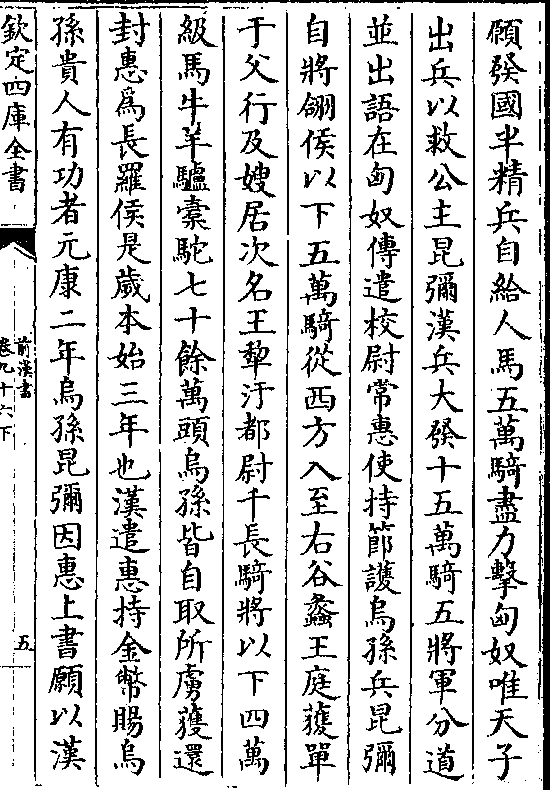 願發國半精兵自給人馬五萬騎盡力擊匈奴唯天子
出兵以救公主昆彌漢兵大發十五萬騎五將軍分道
並出語在匈奴傳遣校尉常惠使持節護烏孫兵昆彌
自將翖侯以下五萬騎從西方入至右谷蠡王庭獲單
于父行及嫂居次名王犂汙都尉千長騎將以下四萬
級馬牛羊驢橐駝七十餘萬頭烏孫皆自取所虜獲還
封惠為長羅侯是歲本始三年也漢遣惠持金幣賜烏
孫貴人有功者元康二年烏孫昆彌因惠上書願以漢
欽定四庫全書
前漢書
卷九十六下
五